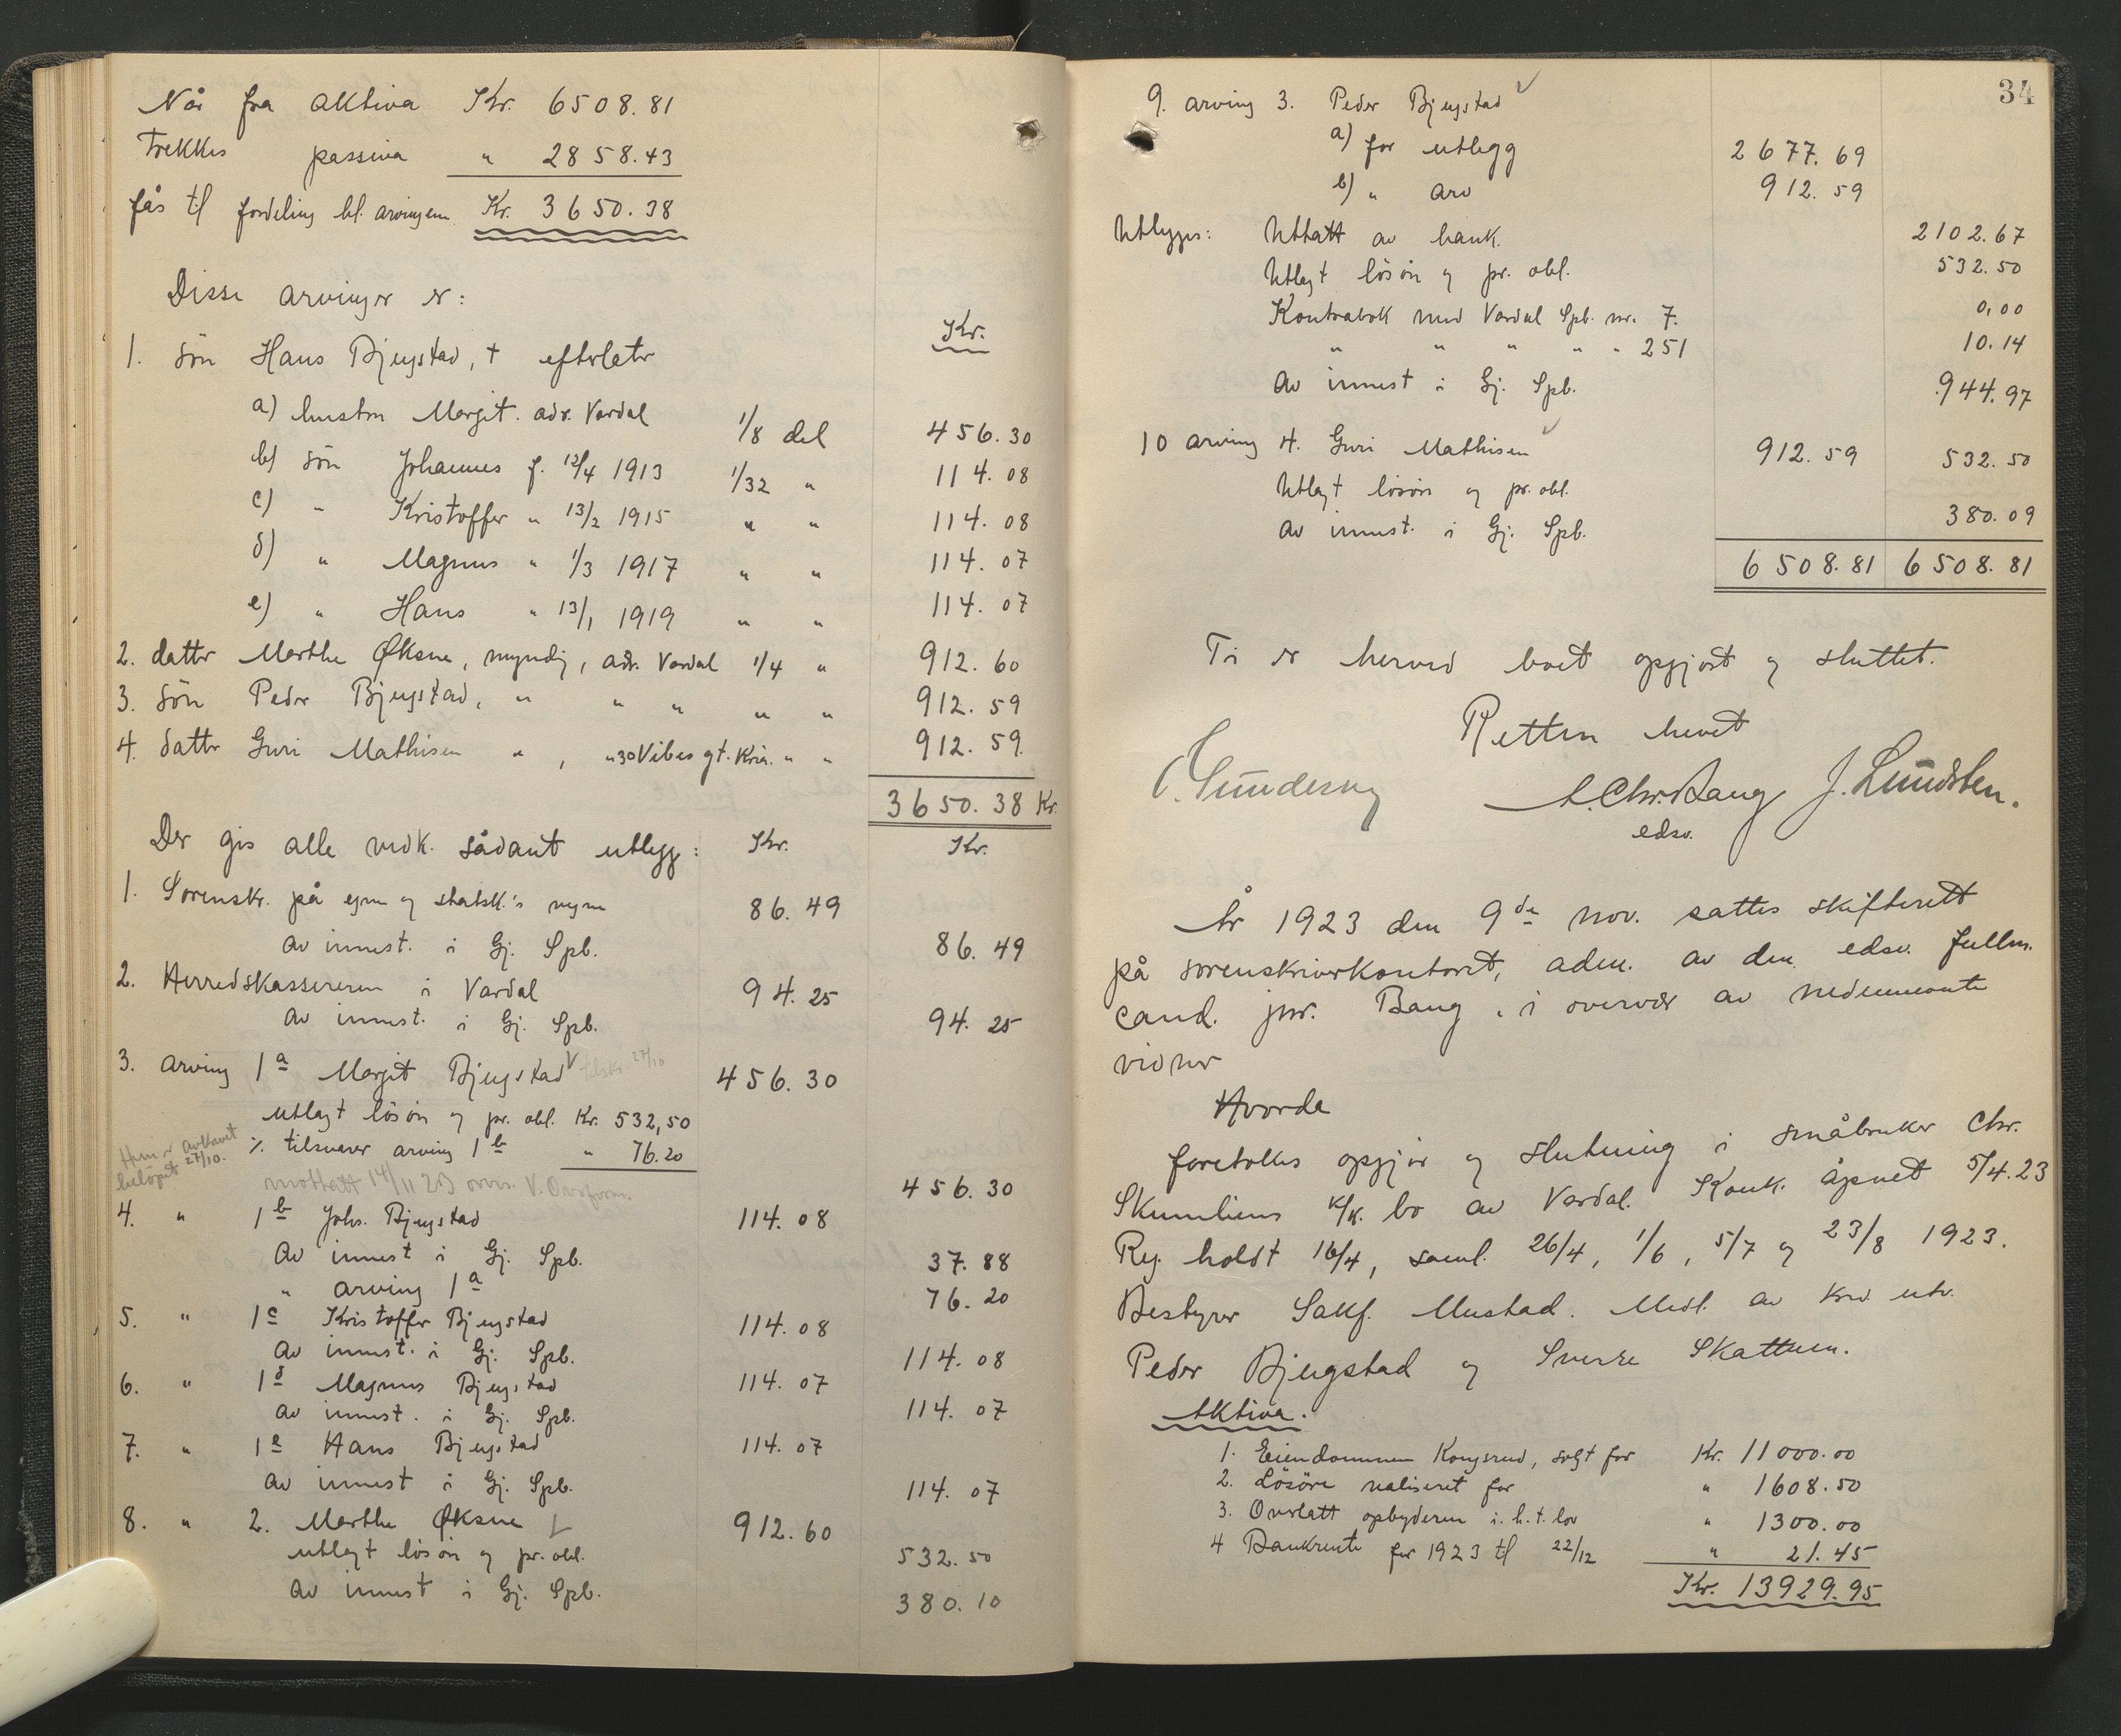 Når fra aktiva Kr. 6508.81
trekkes passiva " 2858.43
fås til fordeling bl. arvingene Kr. 3650.38
Disse arvinger er:
Kr.
1. sön Hans Bjugstad, † efterlater
a) hustru Margit. adr. Vardal 1/8 del 456.30
b) sön Johannes f. 12/4 1913 1/32 " 114.08
c) " Kristoffer " 13/2 1915 " " 114.08
d) " Magnus " 1/3 1917 " " 114.07
e) " Hans " 13/1 1919 " " 114.07
2. datter Marthe Øksne, myndig, adr. Vardal 1/4 " 912.60
3. sön Peder Bjugstad, " " " " " 912.59
4. datter Guri Mathisen " , " 30 Vibes gt. Kria. " " 912.59
3650.38 Kr.
Der gis alle vedk. sådant utlegg: Kr. Kr.
1. Sorenskr. på egne og statsk.'s vegne 86.49
av innest. i Gj. Spb. 86.49
2. Herredskassereren i Vardal 94.25
av innest. i Gj. Spb. 94.25
3. arving 1a Margit Bjugstad V tilskr. 27/10 456.30
utlagt lösöre og pr. obl. Kr. 532,50
٪ tilsvarer arving 1b " 76.20
beløpet 27/10.
mottatt 14/11 23
456.30
4. " 1b Johs. Bjugstad 114.08
Av innest i Gj. Spb. 37.88
" arving 1a 76.20
5. " 1c Kristoffer Bjugstad 114.08
av innest. i Gj. Spb. 114.08
6. " 1d Magnus Bjugstad 114.07
av innest. i Gj. Spb. 114.07
7. " 1e Hans Bjugstad 114.07
av innest i Gj. Spb. 114.07
8. " 2. Marthe Øksne 912.60
utlagt lösöre og pr. obl. 532.50
av innest i Gj. Spb. 380.10
34
9. arving 3. Peder Bjugstad
a) for utlegg 2677.69
b) " arv 912.59
Utlegges: Uttatt av bank. 2102.67
Utlagt lösöre og pr. obl. 532.50
Kontrabok med Vardal Spb. nr. 7. 0,00
" " " " " 251 10.14
av innest i Gj. Spb. 944.97
10 arving 4. Guri Mathisen 912.59 532.50
Utlagt lösöre og pr. obl.
av innest. i Gj. Spb. 380.09
6508.81 6508.81
Ti er herved boet opgjort og sluttet.
Retten hevet
A. Chr. Bang J. Lundsten.
edsv.
År 1923 den 9de nov. sattes skifterett
på sorenskriverkontoret, adm. av den edsv. fullm.
cand. jur. Bang, i overvær av nedennevnte
vidner
Hvorda
foretokes opgjør og slutning i småbruker Chr.
Skumliens k/k. bo av Vardal. Konk. åpnet 5/4.23
Reg. holdt 16/4, saml. 26/4, 1/6, 5/7 og 23/8 1923.
Bestyrer Sakf. Mustad. Medl. av kred. utv.
Peder Bjugstad og Sverre Skattum.
Aktiva.
1. Eiendommen Kongsrud, solgt for Kr. 11000.00
2. Lösöre realiseret for " 1608.50
3. Overlatt opbyderen i. h. t. lov " 1300.00
4 Bankrente for 1923 til 22/12 " 21.45
Kr. 13929.95